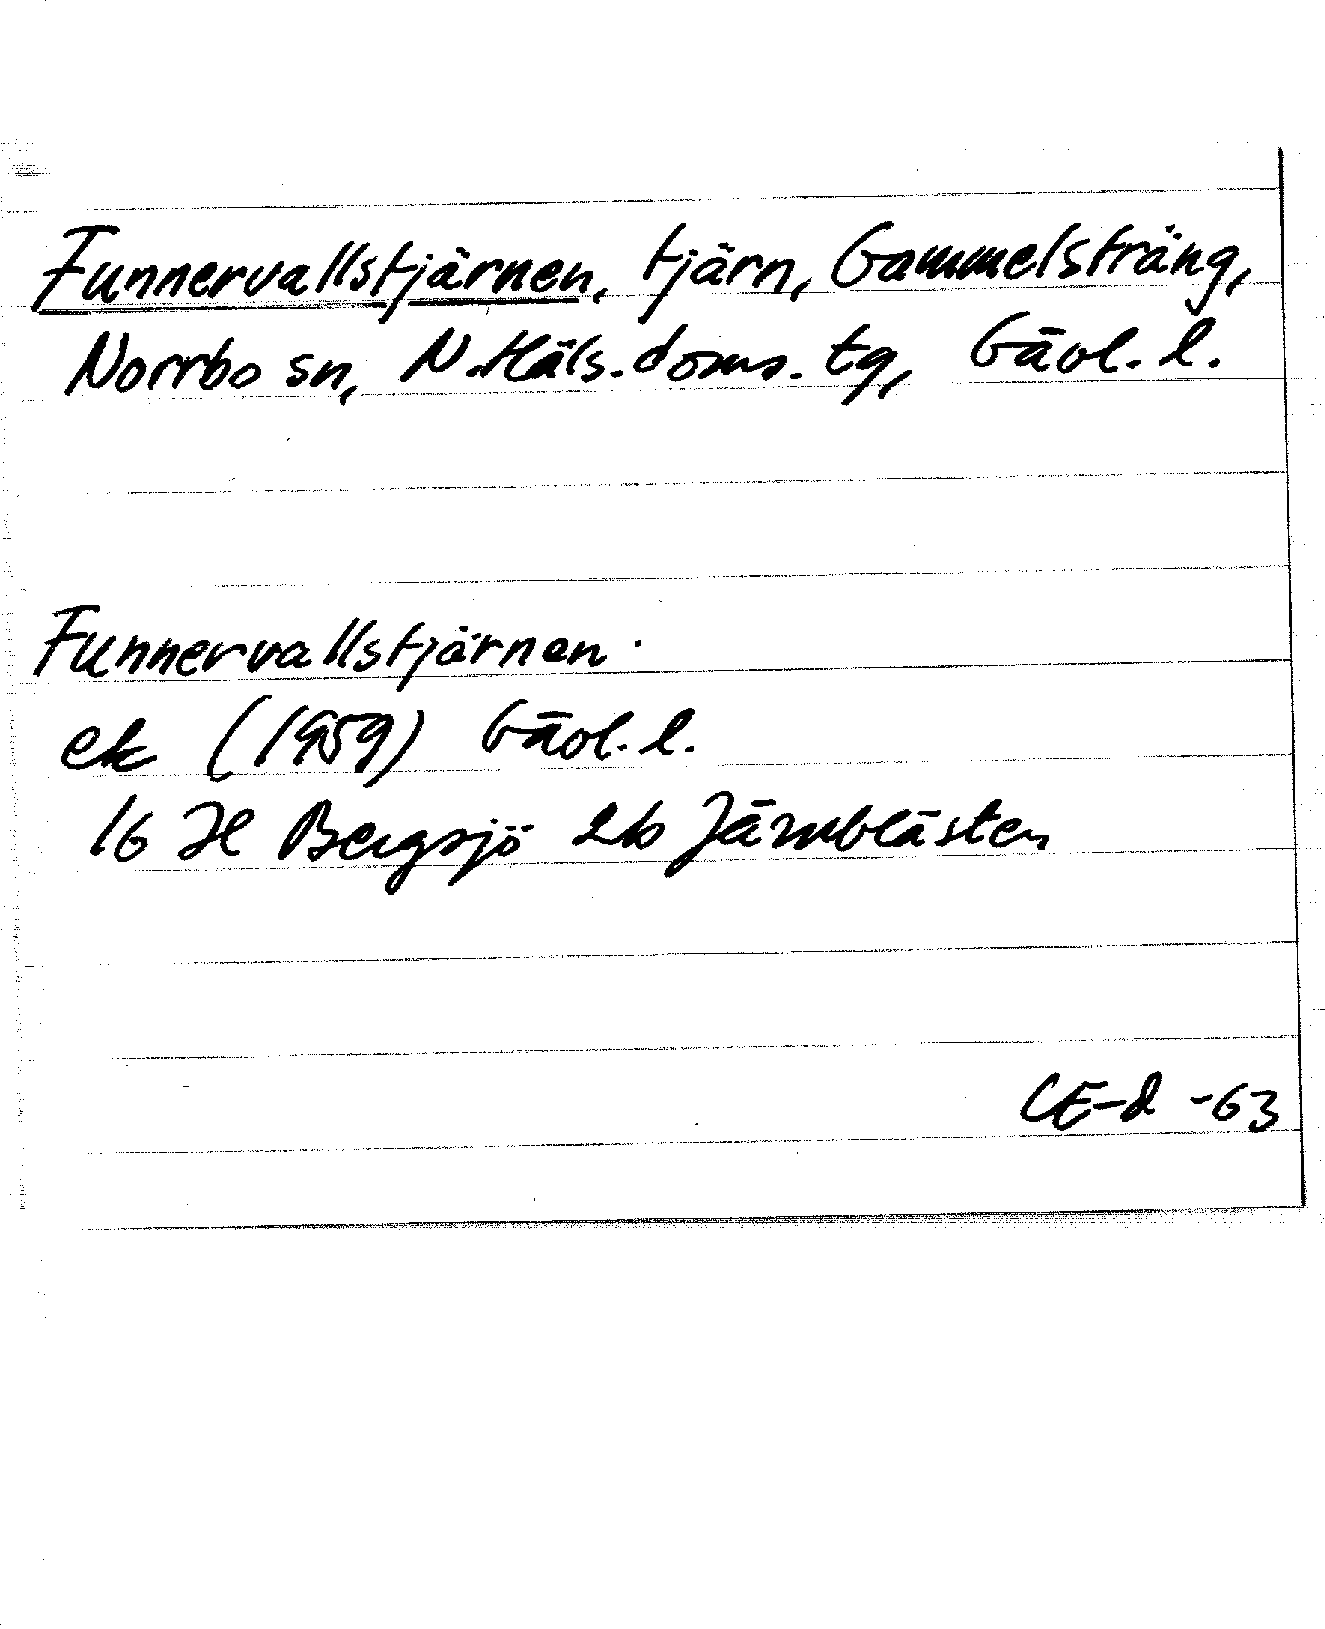 Funnervallstjärnen, tjärn, Gammelsträng,
Norrbo sn, N. Häls. doms. tg, Gävl. l.
Funnervallstjärnen.
ek (1959) Gävl. l.
16 H Bergsjö 2b Järnblästen
CE-d -63